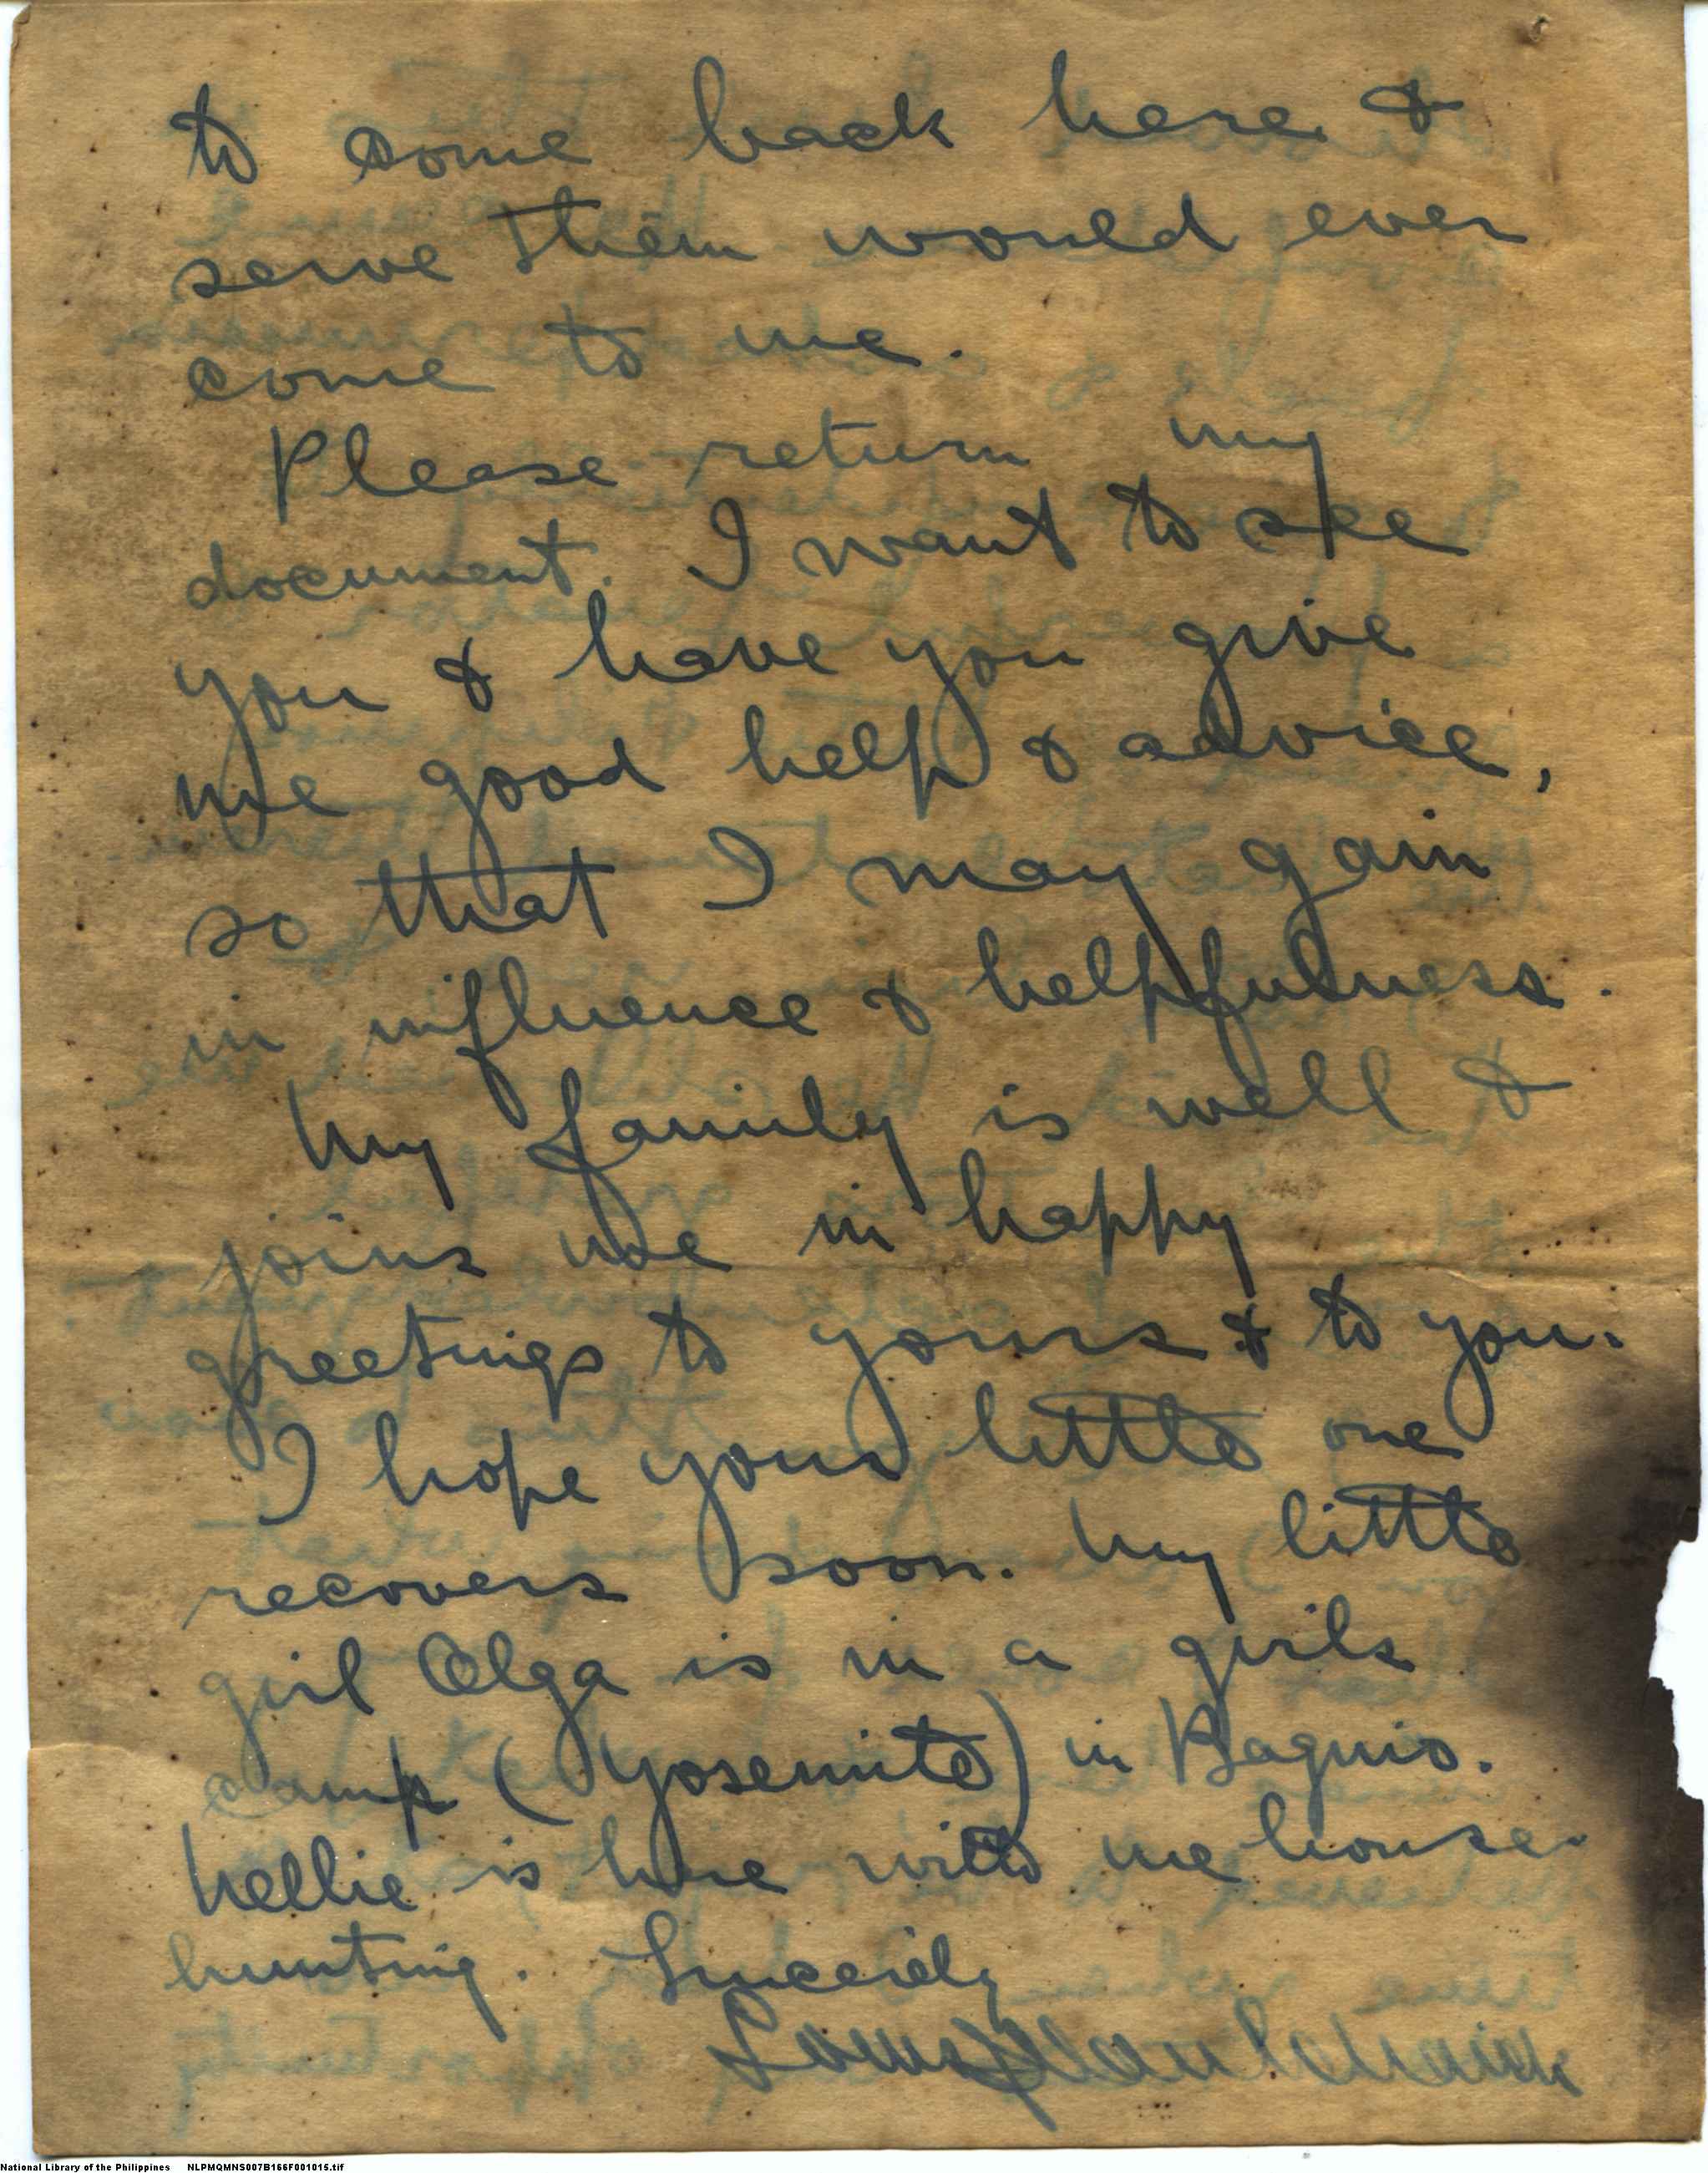 to come back here &
serve them would ever
come to me.
Please return my
document. I want to see
you & have you give
me good help & advice,
so that I may gain
in influence & helpfulness.
My family is well &
joins me in happy
greetings to yours & to you.
I hope your little one
recovers soon. My little
girl Olga is in a girls
camp (Yosemite) in Baguio.
Nellie is here with me house-
hunting. Sincerely
Louis Van Schaick
National Library of the Philippines NLPMQMNS007B166F001015.tif